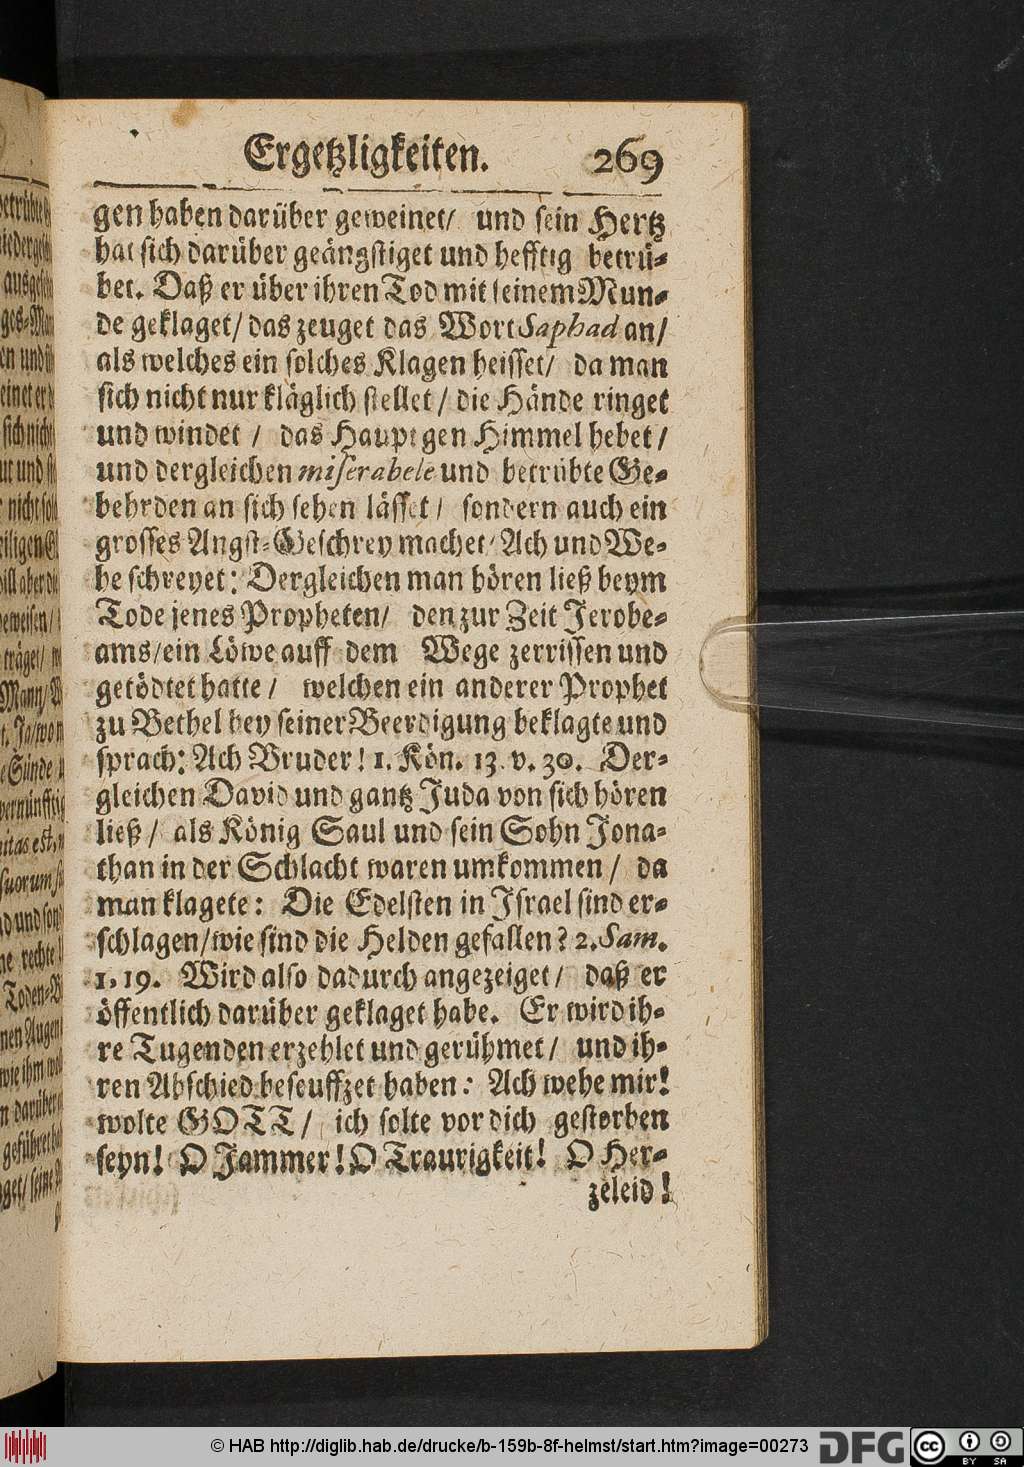 Ergetzligkeiten. 269
gen haben darüber geweinet/ und sein Hertz
hat sich darüber geängstiget und hefftig betrü-
bet. Daß er über ihren Tod mit seinem Mun-
de geklaget/ das zeuget das Wort Saphad an/
als welches ein solches Klagen heisset/ da man
sich nicht nur kläglich stellet/ die Hände ringet
und windet/ das Haupt gen Himmel hebet/
und dergleichen miserabele und betrübte Ge-
behrden an sich sehen lässet/ sondern auch ein
grosses Angst-Geschrey machet/ Ach und We-
he schreyet: Dergleichen man hören ließ beym
Tode jenes Propheten/ den zur Zeit Jerobe-
ams/ ein Löwe auff dem Wege zerrissen und
getödtet hatte/ welchen ein anderer Prophet
zu Bethel bey seiner Beerdigung beklagte und
sprach: Ach Bruder! 1. Kön. 13. v. 30. Der-
gleichen David und gantz Juda von sich hören
ließ/ als König Saul und sein Sohn Jona-
than in der Schlacht waren umkommen/ da
man klagete: Die Edelsten in Israel sind er-
schlagen/ wie sind die Helden gefallen? 2. Sam.
1, 19. Wird also dadurch angezeiget/ daß er
öffentlich darüber geklaget habe. Er wird ih-
re Tugenden erzehlet und gerühmet/ und ih-
ren Abschied beseuffzet haben: Ach wehe mir!
wolte GOTT/ ich solte vor dich gestorben
seyn! O Jammer! O Traurigkeit! O Her-
zeleid!
© HAB http://diglib.hab.de/drucke/b-159b-8f-helmst/start.htm?image=00273
DFG
cc BY SA